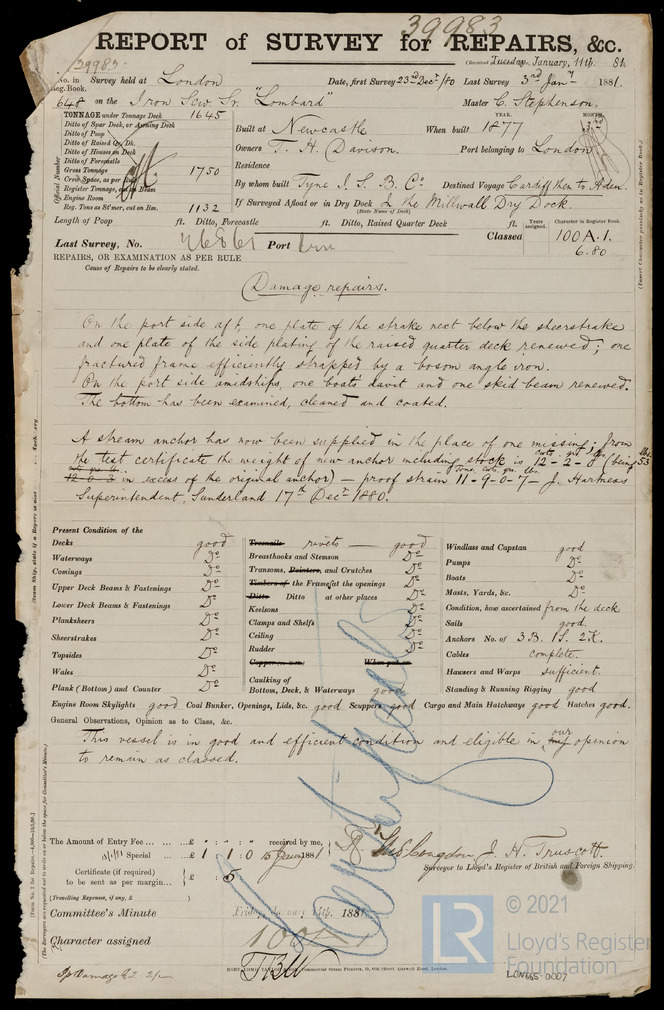 39983
REPORT of SURVEY for REPAIRS, &c.
39983
(Received Tuesday, January, 11th. 81.
No. in Survey held at London Date, first Survey 23rd Decr /80 Last Survey 3rd Jany 1881.
Reg. Book.
648 on the Iron Scw. Sr. "Lombard" Master C. Stephenson.
TONNAGE under Tonnage Deck 1645
Ditto of Spar Deck, or Awning Deck
Ditto of Poop
Ditto of Raised Qr. Dk.
Ditto of Houses on Deck
Ditto of Forecastle
Gross Tonnage 1750
Crew Space, as per
Register Tonnage, cut on Beam
Engine Room
Reg. Tons as St'mer, cut on Bm. 1132
Official Number
Built at Newcastle When built YEAR. 1877 MONTH. 3rd
Owners T. H. Davison. Port belonging to London
Residence
By whom built Tyne I. S. B. Co Destined Voyage Cardiff then to Aden.
If Surveyed Afloat or in Dry Dock In the Millwall Dry Dock.
(State Name of Dock)
Length of Poop ft. Ditto, Forecastle ft. Ditto, Raised Quarter Deck ft.
Last Survey, No. 46861 Port Lon
Classed Years assigned. Character in Register Book.
100 A.1.
6.80
REPAIRS, OR EXAMINATION AS PER RULE
Cause of Repairs to be clearly stated.
Damage repairs.
On the port side aft, one plate of the strake next below the sheerstrake
and one plate of the side plating of the raised quarter deck renewed; one
fractured frame efficiently strapped by a bosom angle iron.
On the port side amidships, one boats davit and one skid beam renewed.
The bottom has been examined, cleaned and coated.
A stream anchor has now been supplied in the place of one missing; from
the test certificate the weight of new anchor including stock is cwts. qrs. lbs. 12-2-0 (being lbs. 53
in excess of the original anchor) — proof strain Tons. cwts. qrs. lbs. 11-9-0-7 — J. Hartness
Superintendent, Sunderland 17th Decr 1880.
Present Condition of the
Decks good
Waterways Do
Comings Do
Upper Deck Beams & Fastenings Do
Lower Deck Beams & Fastenings Do
Planksheers Do
Sheerstrakes Do
Topsides Do
Wales Do
Plank (Bottom) and Counter Do
Treenails rivets — good
Breasthooks and Stemson Do
Transoms, Pointers, and Crutches Do
Timbers of the Frame at the openings Do
Ditto Ditto at other places Do
Keelsons Do
Clamps and Shelfs Do
Ceiling Do
Rudder Do
When put on
Caulking of
Bottom, Deck, & Waterways good
Windlass and Capstan good
Pumps Do
Boats Do
Masts, Yards, &c. Do
Condition, how ascertained from the deck
Sails good.
Anchors No. of 3 B. 1 S. 2 K.
Cables complete.
Hawsers and Warps sufficient.
Standing & Running Rigging good
Engine Room Skylights good Coal Bunker, Openings, Lids, &c. good Scuppers good Cargo and Main Hatchways good Hatches good.
General Observations, Opinion as to Class, &c.
This vessel is in good and efficient condition and eligible in our opinion
to remain as classed.
The Amount of Entry Fee ... ... £ : : : received by me,
Special ... £ 1 : 1 : 0 15 Jany 1881
Certificate (if required)
to be sent as per margin... £ : 5
(Travelling Expenses, if any, £ )
Thos Congdon, J. H. Truscott
Surveyor to Lloyd's Register of British and Foreign Shipping.
Committee's Minute Friday, January 14th. 1881
Character assigned 100 A 1
© 2021
LR
Lloyd's Register
Foundation
LON665-0007